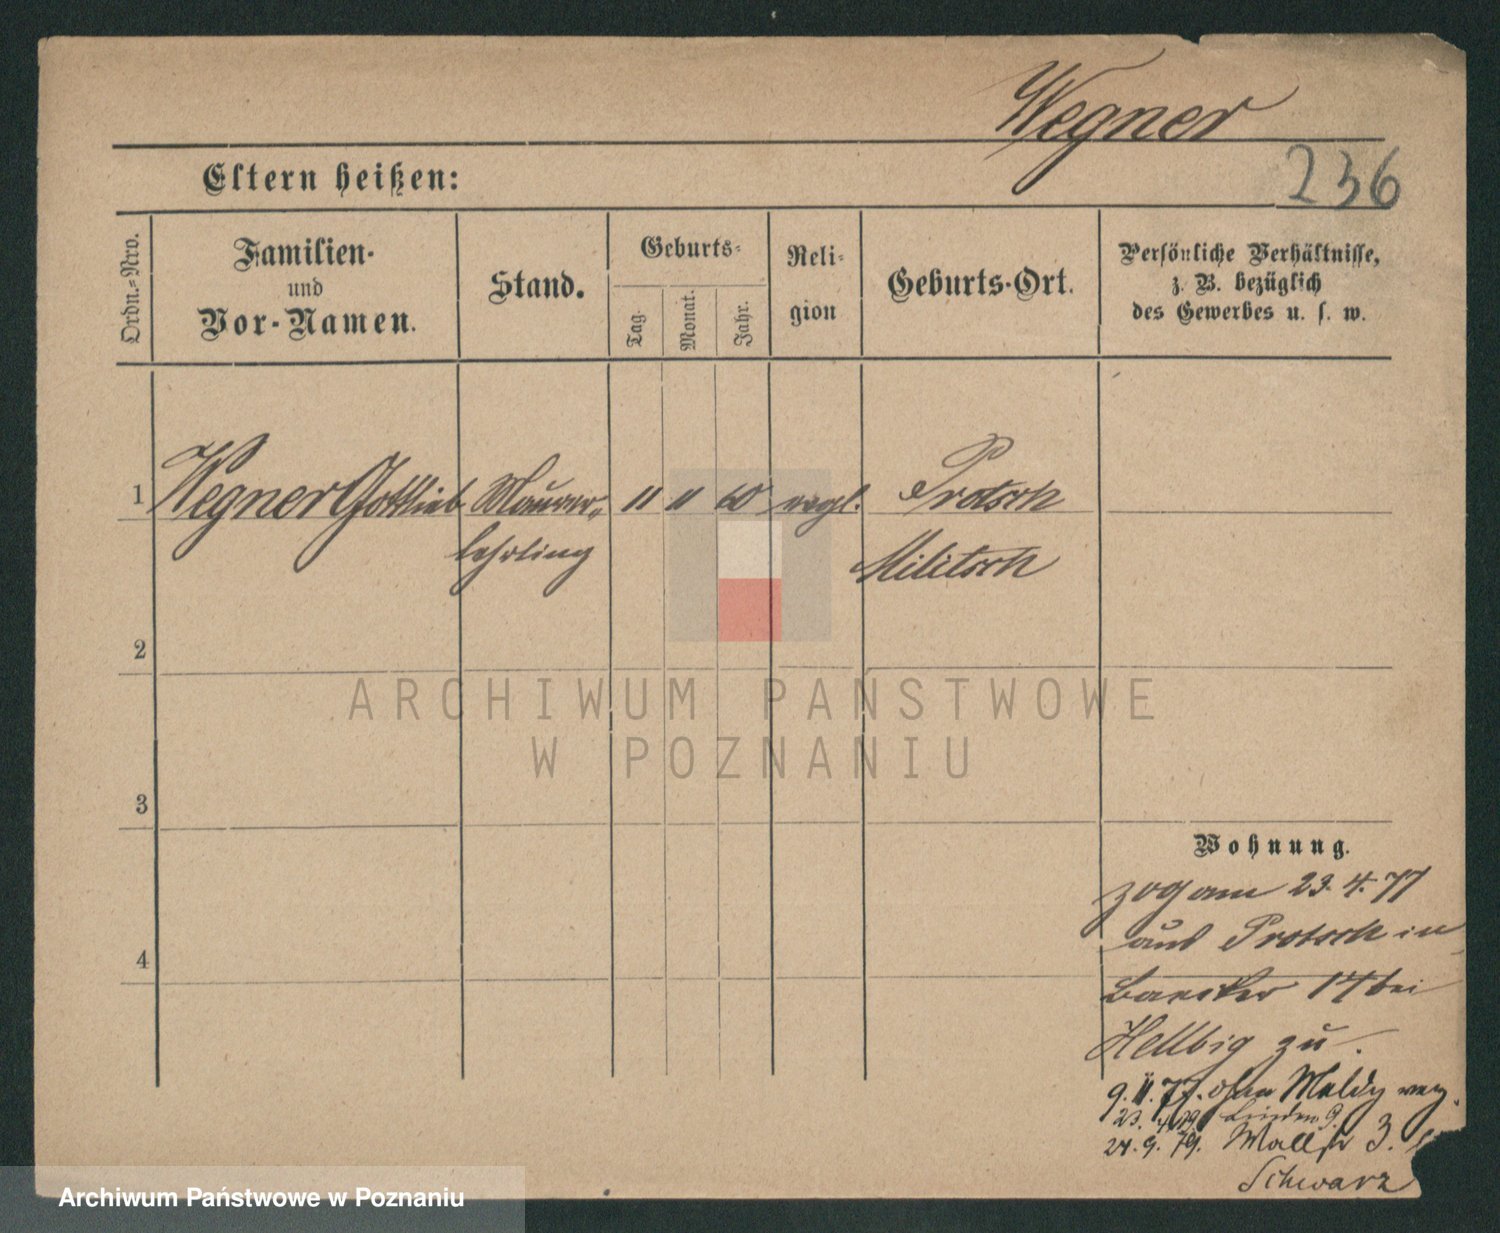 Wegner
236
Eltern heißen:
Ordn.-Nro.
Familien-
und
Vor-Namen.
Stand.
Geburts-
Tag.
Monat.
Jahr.
Reli-
gion
Geburts-Ort.
Persönliche Verhältnisse,
z. B. bezüglich
des Gewerbes u. s. w.
1 Wegner Gottlieb Maurer- 11 11 60 evgl. Protsch
lehrling Militsch
2
3
4
ARCHIWUM PAŃSTWOWE
W POZNANIU
Wohnung.
zog am 23. 4. 77
aus Protsch in
17 bei
Hellbig zu.
9. 11. 77. ohne Meldg weg.
23. 4. 79
24. 9. 79. Wallstr 3.
Schwarz
Archiwum Państwowe w Poznaniu